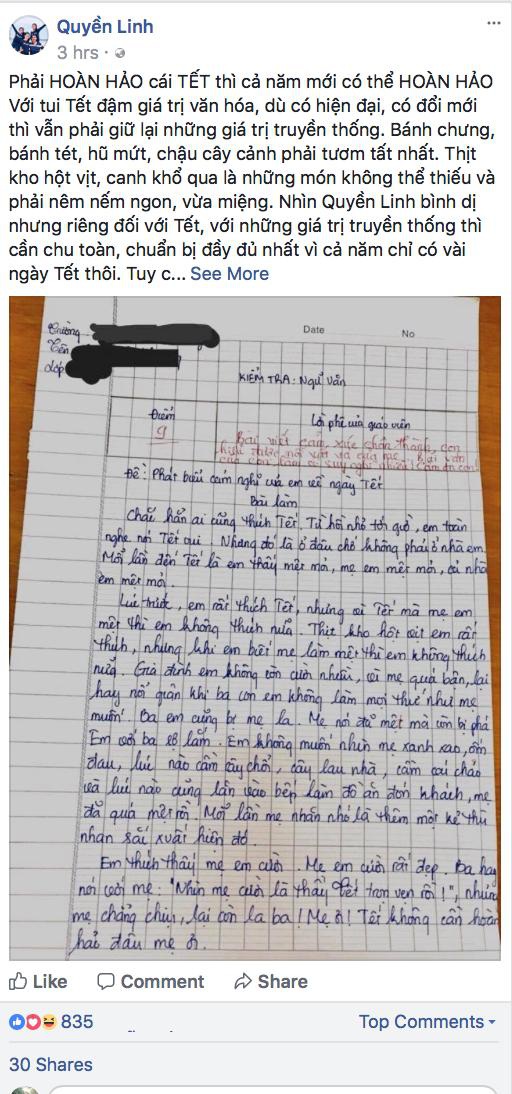 Quyền Linh
3 hrs ·
Phải HOÀN HẢO cái TẾT thì cả năm mới có thể HOÀN HẢO
Với tui Tết đậm giá trị văn hóa, dù có hiện đại, có đổi mới
thì vẫn phải giữ lại những giá trị truyền thống. Bánh chưng,
bánh tét, hũ mứt, chậu cây cảnh phải tươm tất nhất. Thịt
kho hột vịt, canh khổ qua là những món không thể thiếu và
phải nêm nếm ngon, vừa miệng. Nhìn Quyền Linh bình dị
nhưng riêng đối với Tết, với những giá trị truyền thống thì
cần chu toàn, chuẩn bị đầy đủ nhất vì cả năm chỉ có vài
ngày Tết thôi. Tuy c... See More
Date No
Trường
Tên
Lớp
KIỂM TRA: Ngữ văn
Điểm
Lời phê của giáo viên
9
Bài viết cảm xúc chân thành, con
hiểu được nỗi vất vả của mẹ. Bài văn
của con làm cô suy nghĩ nhiều! Cảm ơn con
Đề: Phát biểu cảm nghĩ của em về ngày Tết
Bài làm
Chắc hẳn ai cũng thích Tết. Từ hồi nhỏ tới giờ, em toàn
nghe nói Tết vui. Nhưng đó là ở đâu chớ không phải ở nhà em.
Mỗi lần đến Tết là em thấy mệt mỏi, mẹ em mệt mỏi, cả nhà
em mệt mỏi.
Lúc trước, em rất thích Tết, nhưng vì Tết mà mẹ em
mệt thì em không thích nữa. Thịt kho hột vịt em rất
thích, nhưng khi em biết mẹ làm mệt thì em không thích
nữa. Gia đình em không còn cười nhiều, vì mẹ quá bận, lại
hay nổi quạu khi ba con em không làm mọi thứ như mẹ
muốn. Ba em cũng bị mẹ la. Mẹ nói đã mệt mà còn bị phá
Em với ba sợ lắm. Em không muốn nhìn mẹ xanh xao, ốm
đau, lúc nào cầm cây chổi, cây lau nhà, cầm cái chảo
và lúc nào cũng lăn vào bếp làm đồ ăn đón khách, mẹ
đã quá mệt rồi. Mỗi lần mẹ nhăn nhó là thêm một kẻ thù
nhan sắc xuất hiện đó.
Em thích thấy mẹ em cười. Mẹ em cười rất đẹp. Ba hay
nói với mẹ: "Nhìn mẹ cười là thấy Tết trọn vẹn rồi!", nhưng
mẹ chẳng chịu, lại còn la ba! Mẹ ơi! Tết không cần hoàn
hải đâu mẹ ơi.
Like Comment Share
835 Top Comments
30 Shares